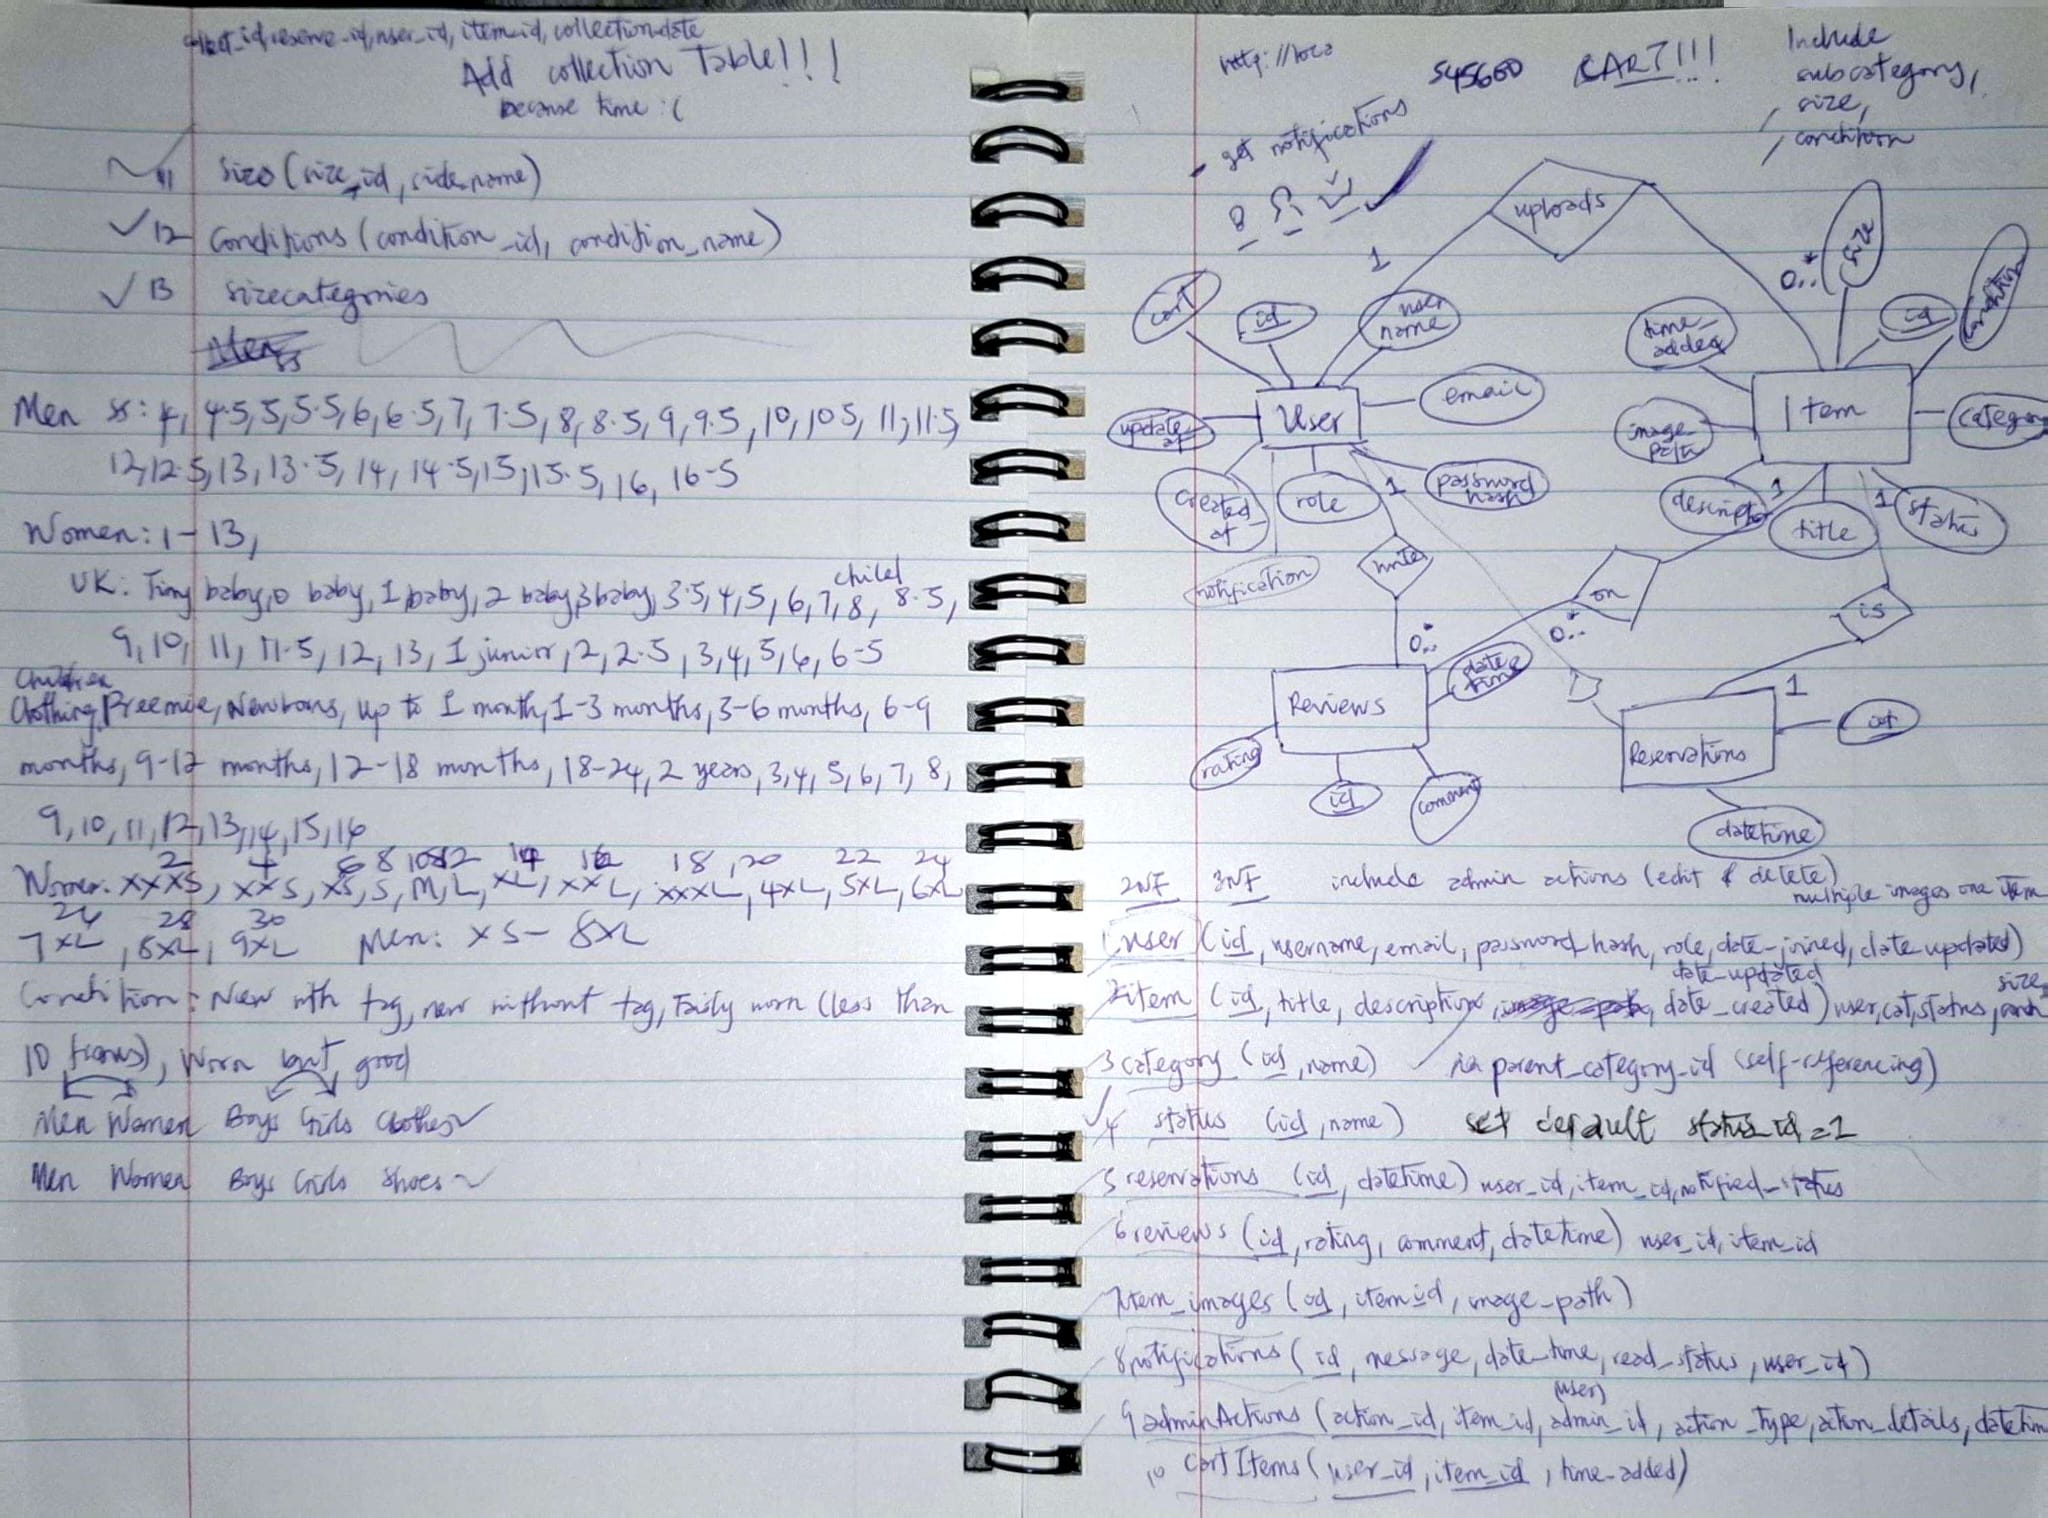 reserve_id, user_id, item_id, collection date
Add collection Table!!!
because time :(
11 Size (size_id, size_name)
12 Conditions (condition_id, condition_name)
13 sizecategories
Men
Men ss: 4, 4.5, 5, 5.5, 6, 6.5, 7, 7.5, 8, 8.5, 9, 9.5, 10, 10.5, 11, 11.5,
12, 12.5, 13, 13.5, 14, 14.5, 15, 15.5, 16, 16.5
Women: 1 - 13,
child
UK: Tiny baby, 0 baby, 1 baby, 2 baby, 3 baby, 3.5, 4, 5, 6, 7, 8, 8.5,
9, 10, 11, 11.5, 12, 13, 1 junior, 2, 2.5, 3, 4, 5, 6, 6.5
Children
Clothing, Preemie, Newborns, up to 1 month, 1-3 months, 3-6 months, 6-9
months, 9-12 months, 12-18 months, 18-24, 2 years, 3, 4, 5, 6, 7, 8,
9, 10, 11, 12, 13, 14, 15, 16
2 4 6 8 10 12 14 16 18, 20 22 24
Women: xxxS, xxS, xS, S, M, L, XL, xxL, xxxL, 4xL, 5xL, 6xL
28 30
7xL, 8xL, 9xL Men: xS - 8xL
Condition: New with tag, new without tag, Fairly worn (less than
10 times), Worn but good
Men Women Boys Girls Clothes
Men Women Boys Girls Shoes
http://loca
545660 CART!!!
Include
subcategory,
, size,
, condition
get notifications
8
uploads
1
0..*
size
cart
id
user
name
time_
added
id
condition
User
email
Item
category
update_
at
image_
path
created_
at
role
1
password
hash
descript
1
title
1
status
notification
writes
on
is
0..*
0..*
Reviews
date
time
1
Reservations
id
rating
id
comment
datetime
2NF 3NF include admin actions (edit & delete)
multiple images one item
1 user (id, username, email, password_hash, role, date_joined, date_updated)
date_updated
size,
2 item (id, title, description, image_path, date_created) user, cat, status,
3 category (id, name) parent_category_id (self-referencing)
4 status (id, name) set default status_id = 1
5 reservations (id, datetime) user_id, item_id, notified_status
6 reviews (id, rating, comment, datetime) user_id, item_id
7 Item_images (id, item_id, image_path)
8 notifications (id, message, date_time, read_status, user_id)
(user)
9 adminActions (action_id, item_id, admin_id, action_type, action_details, datetim
10 CartItems (user_id, item_id, time_added)